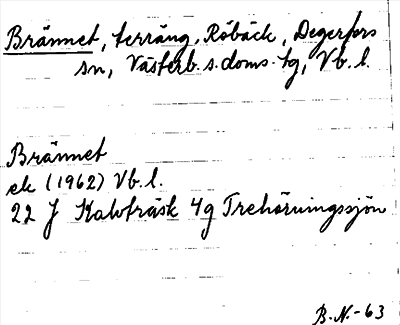 Brännet, terräng, Röbäck, Degerfors
sn, Västerb. s. doms. tg, Vb. l.
Brännet
ek (1962) Vb. l.
22 J Kalvträsk 4g Trehörningssjön
B.N.-63